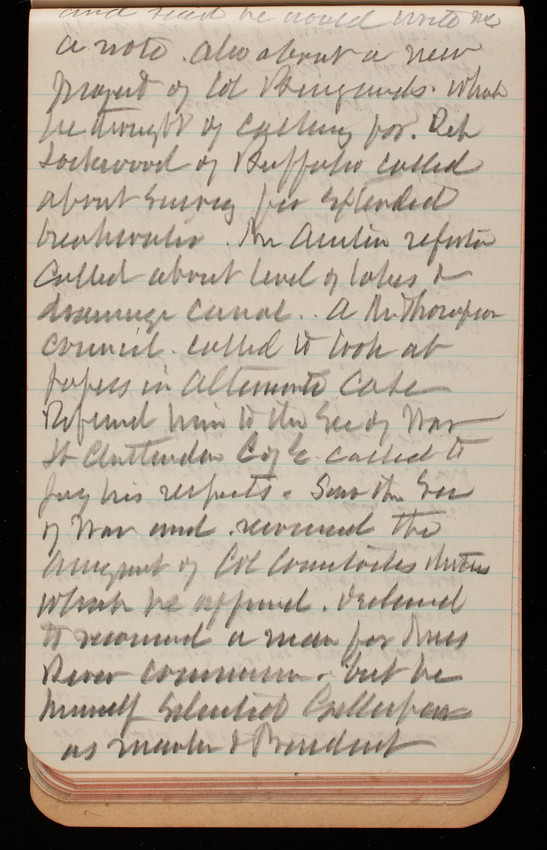 and said he would write me
a note. Also about a new
project of Col 
he thought of calling for. Rep
Lockwood of Buffalo called
about survey for Extended
breakwater. Mr Austin
Called about level of lakes &
drainage canal.. A Mr Thompson
Council. called to look at
papers in Case
Referred him to the Sec of War
Lt Chittenden C of E. called to
pay his respects. Saw the Sec
of War and the
of Col duties
which he approved. declined
to a man for Miss
River commission. but he
himself Selected Gillespie
as member & President